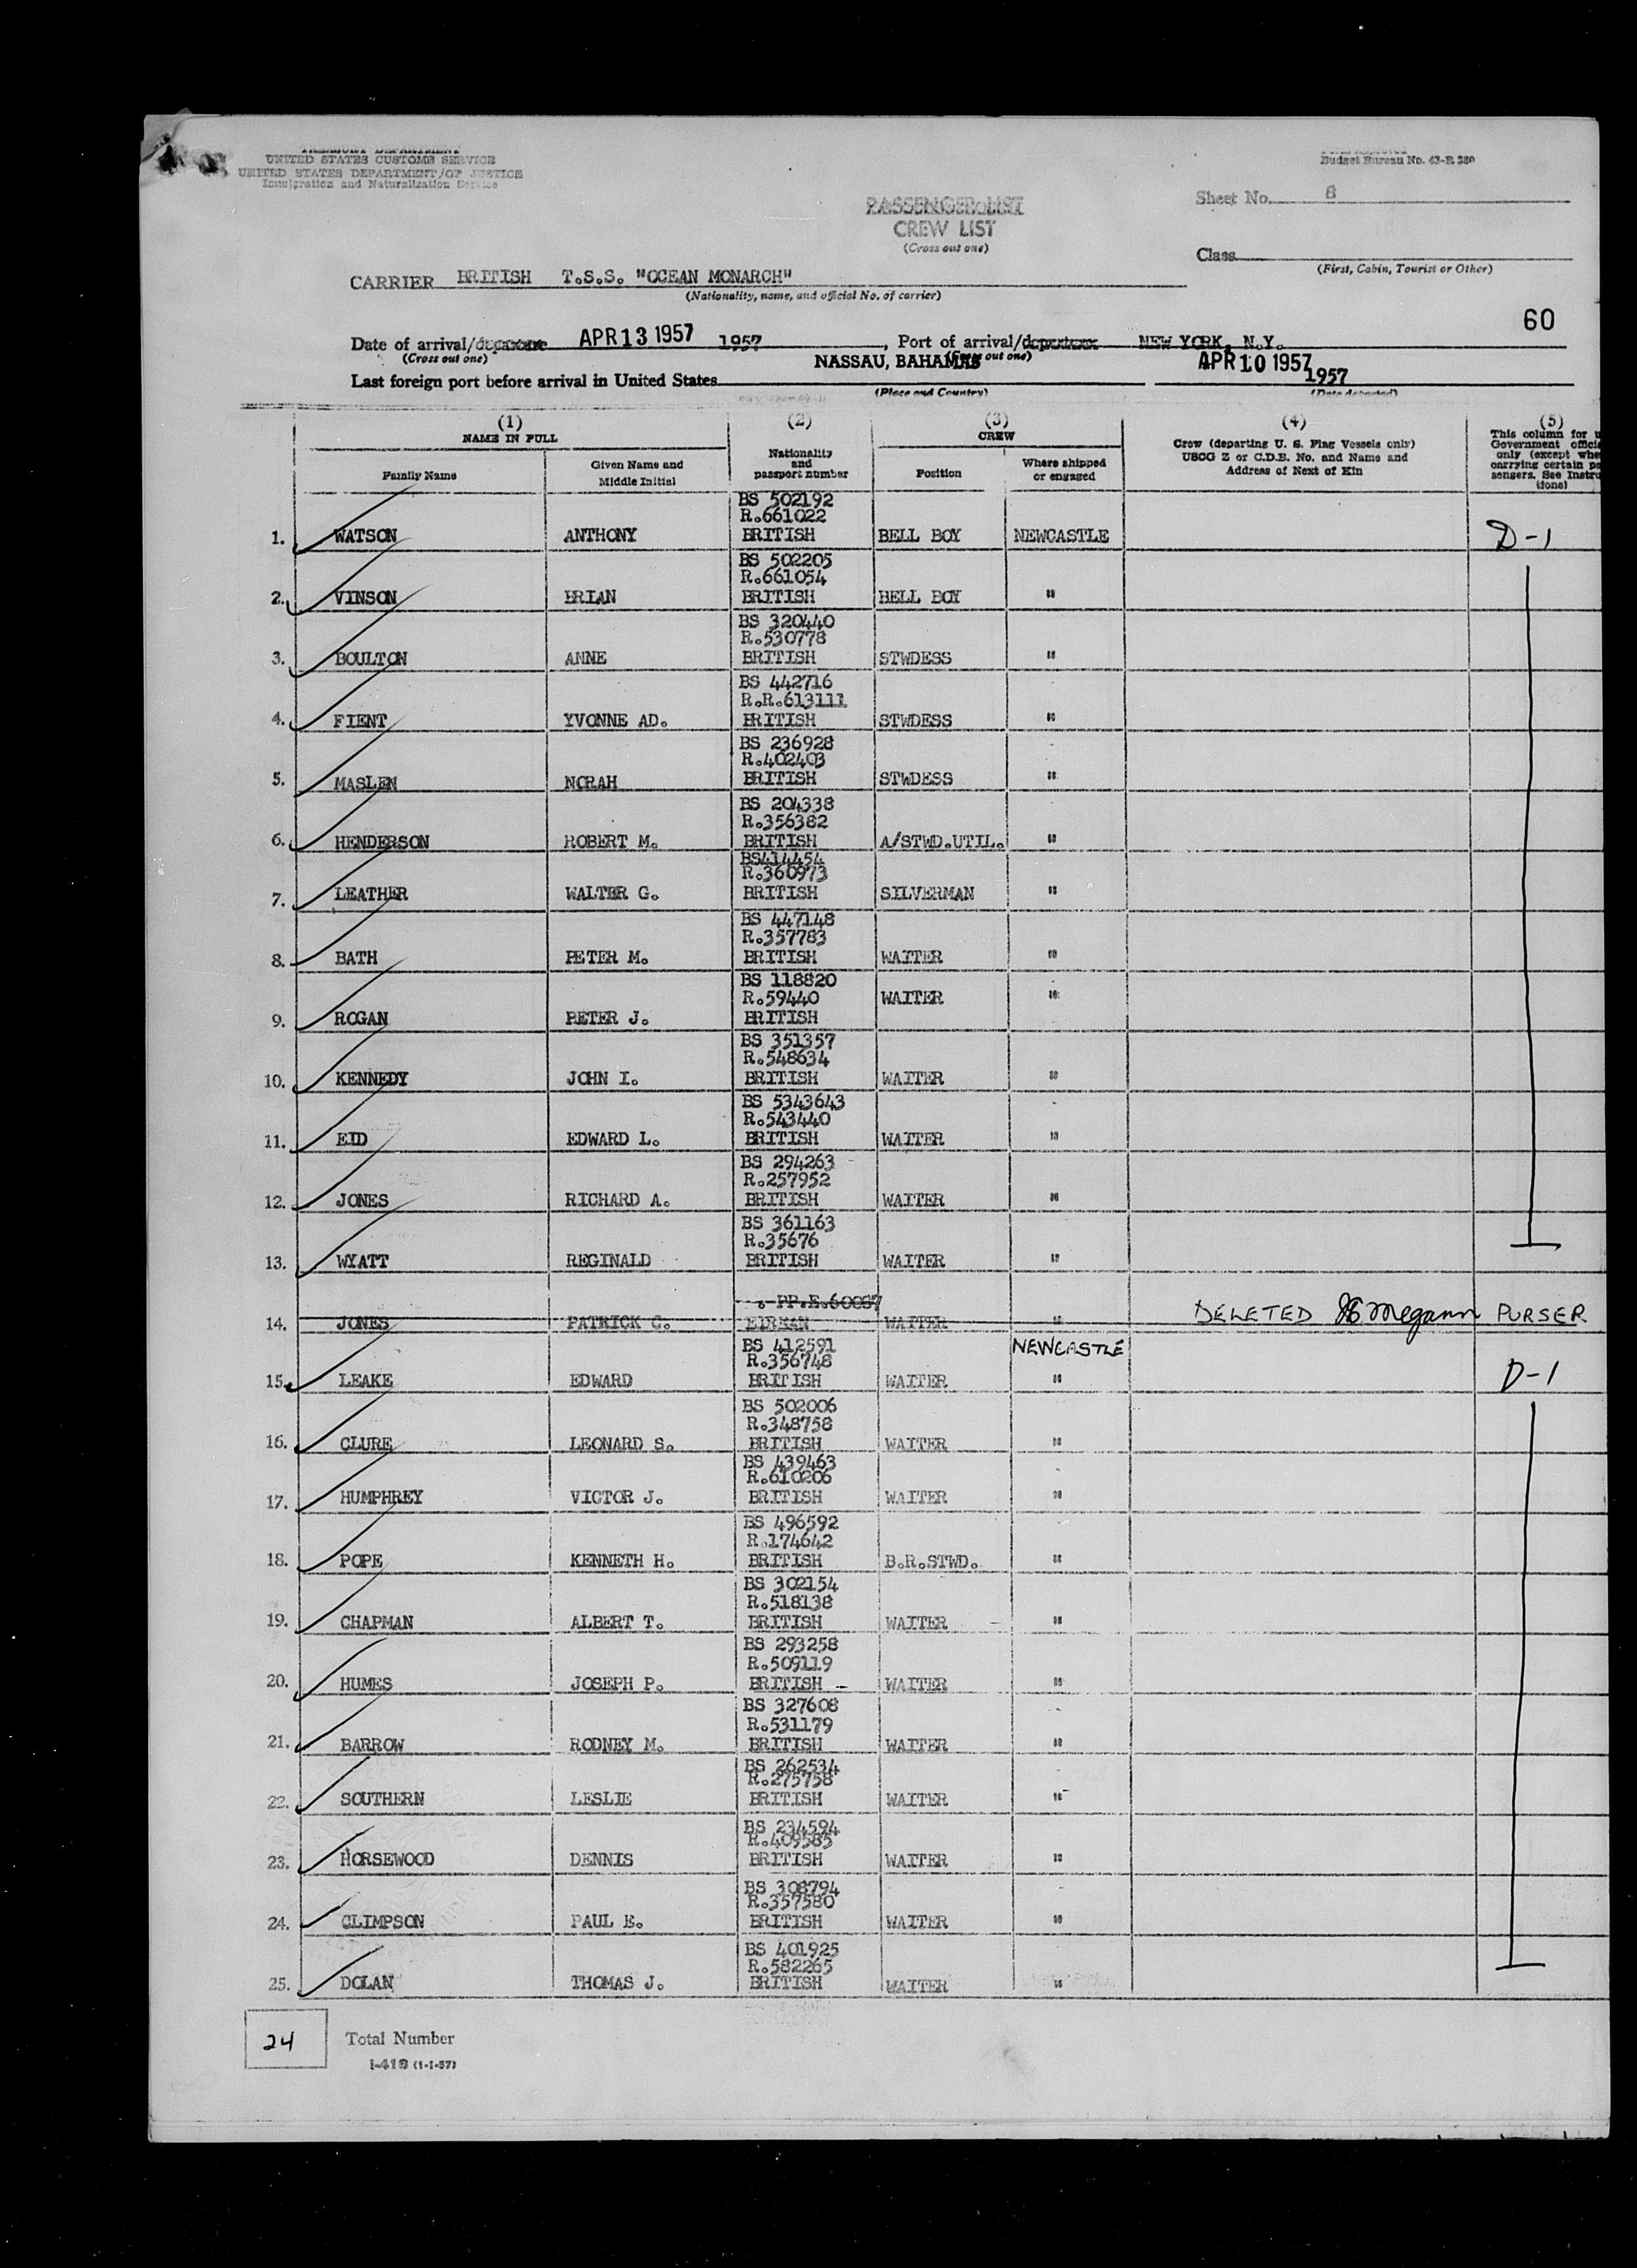 TREASURY DEPARTMENT
UNITED STATES CUSTOMS SERVICE
UNITED STATES DEPARTMENT/OF JUSTICE
Immigration and Naturalization Service
Form Approved
Budget Bureau No. 43-R 380
Sheet No. 8
PASSENGER LIST
CREW LIST
(Cross out one)
Class
(First, Cabin, Tourist or Other)
CARRIER BRITISH T.S.S. "OCEAN MONARCH"
(Nationality, name, and official No. of carrier)
60
Date of arrival/departure APR 13 1957 1957, Port of arrival/departure NEW YORK, N.Y.
(Cross out one) (Cross out one)
NASSAU, BAHAMAS APR 10 1957
Last foreign port before arrival in United States 1957
(Place and Country) (Date departed)
(1) (2) (3) (4) (5)
NAME IN FULL Nationality and passport number CREW Crew (departing U. S. Flag Vessels only) USCG Z or C.D.B. No. and Name and Address of Next of Kin This column for u
Government offici
only (except whe
carrying certain pa
sengers. See Instru
tions)
Family Name Given Name and Middle Initial Position Where shipped or engaged
BS 502192
R.661022
1. WATSON ANTHONY BRITISH BELL BOY NEWCASTLE D-1
BS 502205
R.661054
2. VINSON BRIAN BRITISH BELL BOY "
BS 320440
R.530778
3. BOULTON ANNE BRITISH STWDESS "
BS 442716
R.R.613111
4. FIENT YVONNE AD. BRITISH STWDESS "
BS 236928
R.402403
5. MASLEN NORAH BRITISH STWDESS "
BS 204338
R.356382
6. HENDERSON ROBERT M. BRITISH A/STWD.UTIL. "
BS414454
R.360973
7. LEATHER WALTER G. BRITISH SILVERMAN "
BS 447148
R.357783
8. BATH PETER M. BRITISH WAITER "
BS 118820
R.59440 WAITER "
9. ROGAN PETER J. BRITISH
BS 351357
R.548634
10. KENNEDY JOHN I. BRITISH WAITER "
BS 5343643
R.543440
11. EID EDWARD L. BRITISH WAITER "
BS 294263
R.257952
12. JONES RICHARD A. BRITISH WAITER "
BS 361163
R.35676
13. WYATT REGINALD BRITISH WAITER "
PP.E.60087
14. JONES PATRICK C. EIREAN WAITER " DELETED Megann PURSER
BS 412591 NEWCASTLE
R.356748
15. LEAKE EDWARD BRITISH WAITER " D-1
BS 502006
R.348758
16. CLURE LEONARD S. BRITISH WAITER "
BS 439463
R.610206
17. HUMPHREY VICTOR J. BRITISH WAITER "
BS 496592
R.174642
18. POPE KENNETH H. BRITISH B.R.STWD. "
BS 302154
R.518138
19. CHAPMAN ALBERT T. BRITISH WAITER "
BS 293258
R.509119
20. HUMES JOSEPH P. BRITISH WAITER "
BS 327608
R.531179
21. BARROW RODNEY M. BRITISH WAITER "
BS 262534
R.275758
22. SOUTHERN LESLIE BRITISH WAITER "
BS 234594
R.409585
23. HORSEWOOD DENNIS BRITISH WAITER "
BS 308794
R.357580
24. CLIMPSON PAUL E. BRITISH WAITER "
BS 401925
R.582265
25. DOLAN THOMAS J. BRITISH WAITER "
24 Total Number
I-418 (1-1-57)